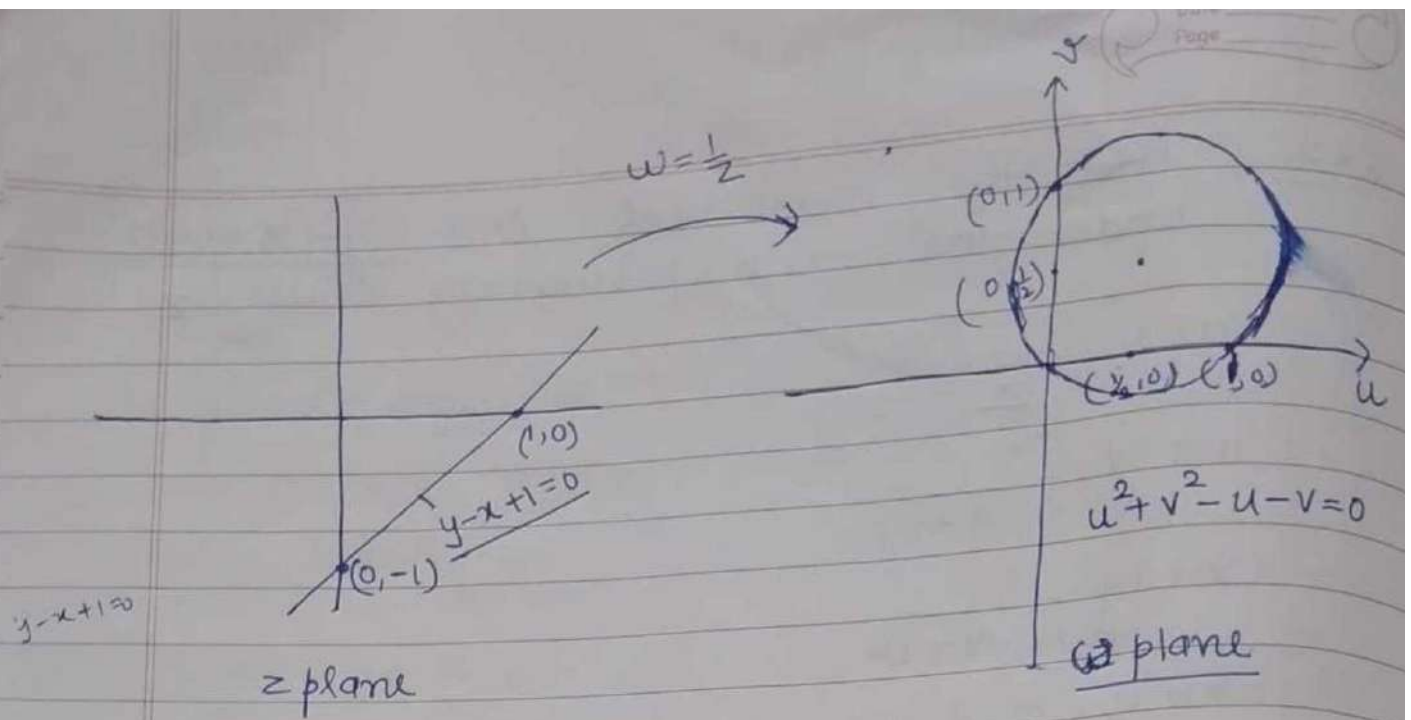 Page
v
w = 1/z
(0,1)
(0, 1/2)
(1/2, 0) (1,0)
u
(1,0)
y-x+1=0
(0,-1)
u²+v²-u-v=0
y-x+1=0
z plane
ω plane